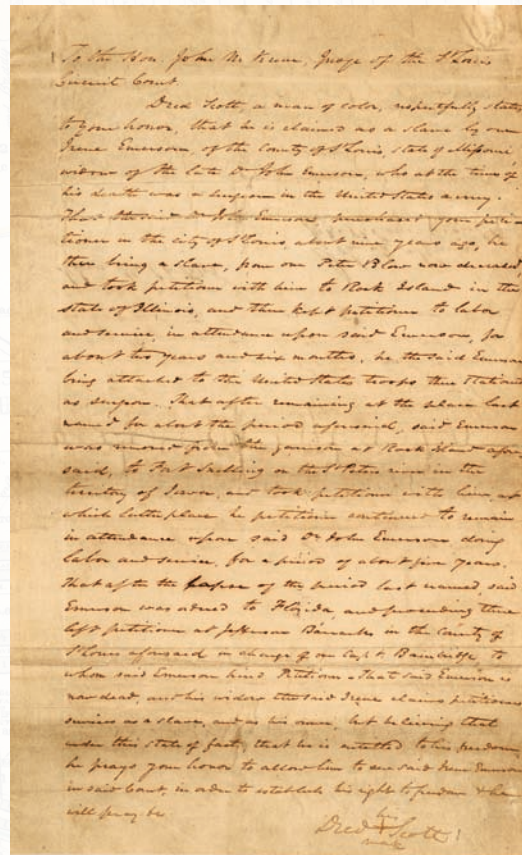 To the Hon. John M. Krum, Judge of the St Louis
Circuit Court.
Dred Scott, a man of color, respectfully states
to your honor, that he is claimed as a slave by one
Irene Emerson, of the County of St Louis, state of Missouri
widow of the late Dr John Emerson, who at the time of
his death was a surgeon in the United States army.
That the said Dr John Emerson purchased your peti-
tioner in the city of St Louis, about nine years ago, he
then being a slave, from one Peter Blow now deceased
and took petitioner with him to Rock Island in the
state of Illinois, and then kept petitioner to labor
and service, in attendance upon said Emerson, for
about two years and six months, he the said Emerson
being attached to the United States troops there stationed
as surgeon. That after remaining at the place last
named for about the period aforesaid, said Emerson
was removed from the garrison at Rock Island afore
said, to Fort Snelling on the St Peters river in the
territory of Iowa, and took petitioner with him, at
which latter place he petitioner continued to remain
in attendance upon said Dr John Emerson doing
labor and service, for a period of about five years.
That after the lapse of the period last named, said
Emerson was ordered to Florida, and proceeding there
left petitioner at Jefferson Barracks in the County of
St Louis aforesaid in charge of one Capt Bainbridge, to
whom said Emerson hired Petitioner. That said Emerson is
now dead, and his widow the said Irene claims petitioners
services as a slave, and as his owner, but believing that
under this state of facts, that he is entitled to his freedom,
he prays your honor to allow him to sue said Irene Emerson
in said Court, in order to establish his right to freedom & he
will pray &c
his
Dred Scott
mark